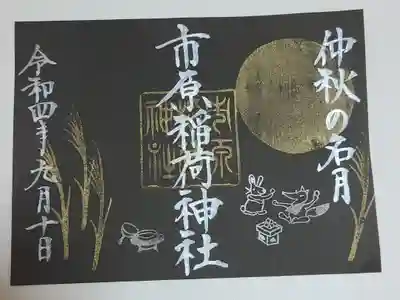 仲秋の名月
市原稲荷神社
市原
神社
令和四年九月十日